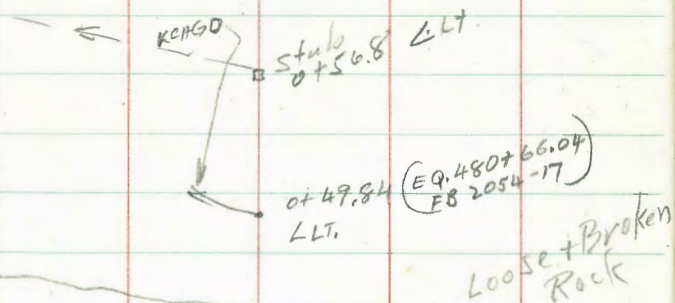 ∠ LT
Stub
0+56.8
0+49.84 (EQ. 480+66.04
FB 2054-17)
∠ LT.
Loose + Broken
Rock